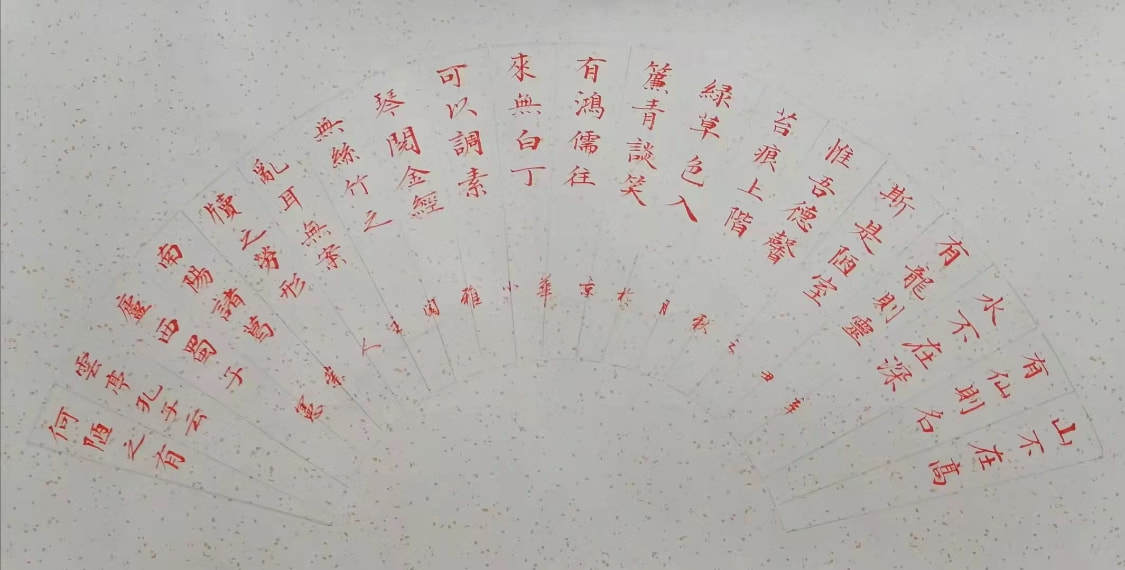 山不在高
有仙則名
水不在深
有龍則靈
斯是陋室
惟吾德馨
苔痕上階
綠草色入
簾青談笑
有鴻儒往
來無白丁
可以調素
琴閱金經
無絲竹之
亂耳無案
牘之勞形
南陽諸葛
廬西蜀子
雲亭孔子云
何陋之有
辛丑之秋月於京華小雅人